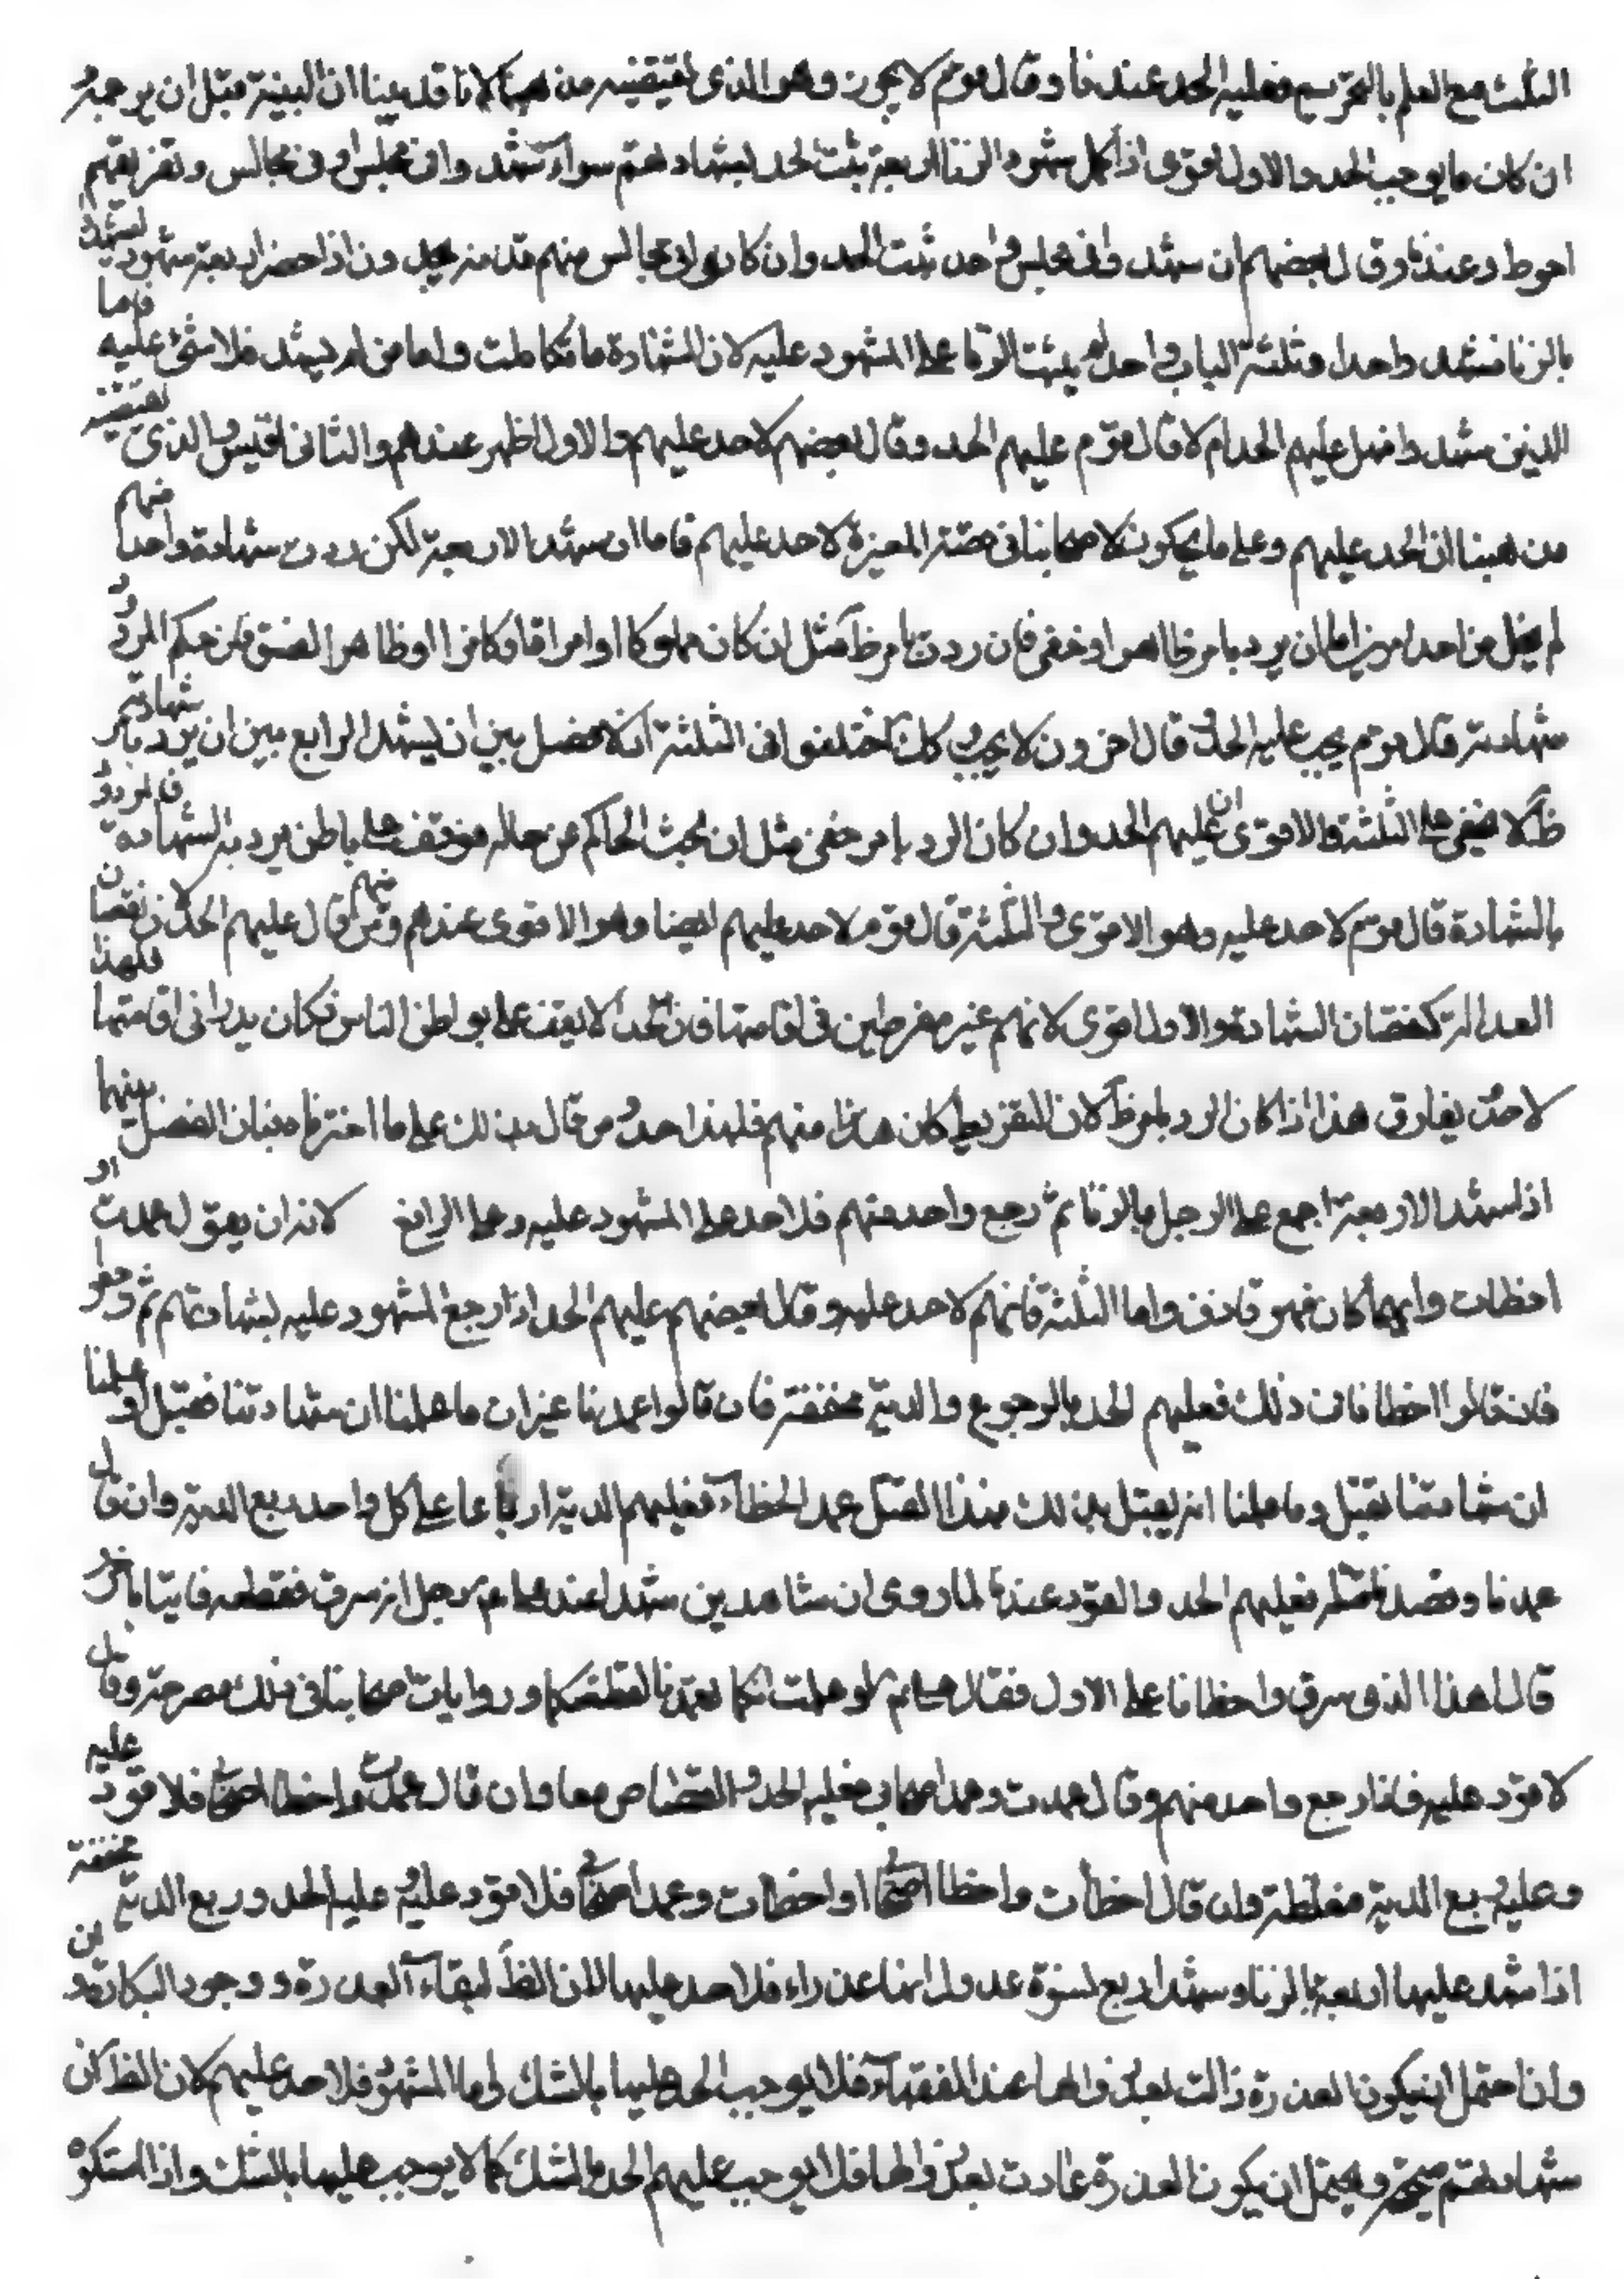 الثلث مع العلم بالتحريم فعليه الحد عندنا وقال قوم لا يجوز وهو الذى يقتضيه مذهبنا لانا قد بينا ان البينة
ان كان ما يوجب الحد والاول اقوى اذا كمل شهود الزنا اربعة ثبت الحد بشهادتهم سواء شهدوا فى مجلس او فى مجالس وتفريقهم
احوط وعندنا وقال بعضهم ان شهدوا فى مجلس واحد ثبت الحد وان كانوا فى مجالس فهم قذفة يحدون اذا حضر اربعة شهود ليشهدوا
بالزنا فشهد واحد او ثلثة الباب واحد لم يثبت الزنا على المشهود عليه لان الشهادة ما تكاملت واما من لم يشهد فلا شئ عليه فاما
الذين شهدوا فهل عليهم الحد ام لا قال قوم عليهم الحد وقال بعضهم لا حد عليهم والاول اظهر عندهم والثانى اقيس والذى يقتضيه
مذهبنا ان الحد عليهم وعلى ما يحكونه لاصحابنا فى قصة المغيرة لا حد عليهم فاما ان شهد الاربعة لكن ردت شهادة واحد منهم
لم يخل من احد امرين اما ان يرد بامر ظاهر او خفى فان ردت بامر ظ مثل ان كان مملوكا او امراة او كافرا او ظاهر الفسق فان حكم المردود
شهادته قال قوم يجب عليه الحد وقال اخرون لا يجب وكك اختلفوا فى الثلثة لانه لا فصل بين ان يشهد الرابع وبين ان يرد شهادته بامر
ظ لا يخفى على الثلثة والاقوى ان عليهم الحد وان كان الرد بامر خفى مثل ان بحث الحاكم عن حاله فوقف على باطن يرد به الشهادة فالمردود
بالشهادة قال قوم لا حد عليه وهو الاقوى والثلثة قال قوم لا حد عليهم ايضا وهو الاقوى عندهم ومنهم من قال عليهم الحد لان نقصان
العدالة كنقصان الشهادة والاول اقوى لانهم غير مفرطين فى اقامتها فان احدا لا يقف على بواطن الناس فكان فى اقامتها فلهذا
لا حد ويفارق هذا اذا كان الرد بامر ظ لان التفريط كان منهم فلهذا حدوا ومن قال بذلك على ما اخترناه فبان الفصل بينهما
اذا شهد الاربعة اجمع على الرجل بالزنا ثم رجع واحد منهم فلا حد على المشهود عليه وعلى الراجع لانه ان يقول عمدت او
اخطات وايهما كان فهو قاذف واما الثلثة فانهم لا حد عليهم وقال بعضهم عليهم الحد اذا رجع المشهود عليه بشهادتهم ثم رجعوا
فان قالوا اخطانا فى ذلك فعليهم الحد بالرجوع والدية مخففة فان قالوا عمدنا غير ان ما علمنا ان شهادتنا تقبل او علمنا
ان شهادتنا تقبل وما علمنا انه يقتل بذلك فهذا القتل عمد الخطاء فعليهم الدية ارباعا على كل واحد ربع الدية وان قال
عمدنا وقصدنا قتله فعليهم الحد والقود عندنا لما روى ان شاهدين شهدا عند على م على رجل انه سرق فقطعه فاتيا باخر
قالا هذا الذى سرق واخطانا على الاول فقال على م لو علمت انكما تعمدتما لقطعتكما وروايات اصحابنا فى ذلك مصرحة وقال
لا قود عليه فاذا رجع واحد منهم وقال عمدت وعمد اصحابى فعليه الحد والقصاص معا وان قال عمدت واخطا اصحابى فلا قود عليه
وعليه ربع الدية مغلظة وان قال اخطأت واخطا اصحابى او اخطأت وعمد اصحابى فلا قود عليه عليه الحد وربع الدية مخففة
اذا شهد عليها اربعة بالزنا وشهد اربع نسوة عدول انها عذراء فلا حد عليها لان الظ بقاء العذرة ووجود البكارة
وان احتمل ان يكون العذرة زالت بعد زوالها عند الفقهاء فلا يوجب الحد عليها بالشك واما الشهود فلا حد عليهم لان الظ ان
شهادتهم صحيحة ويحتمل ان يكون العذرة عادت بعد زوالها فلا يوجب عليهم الحد بالشك كما لا يوجب عليها بالشك واذا استكره